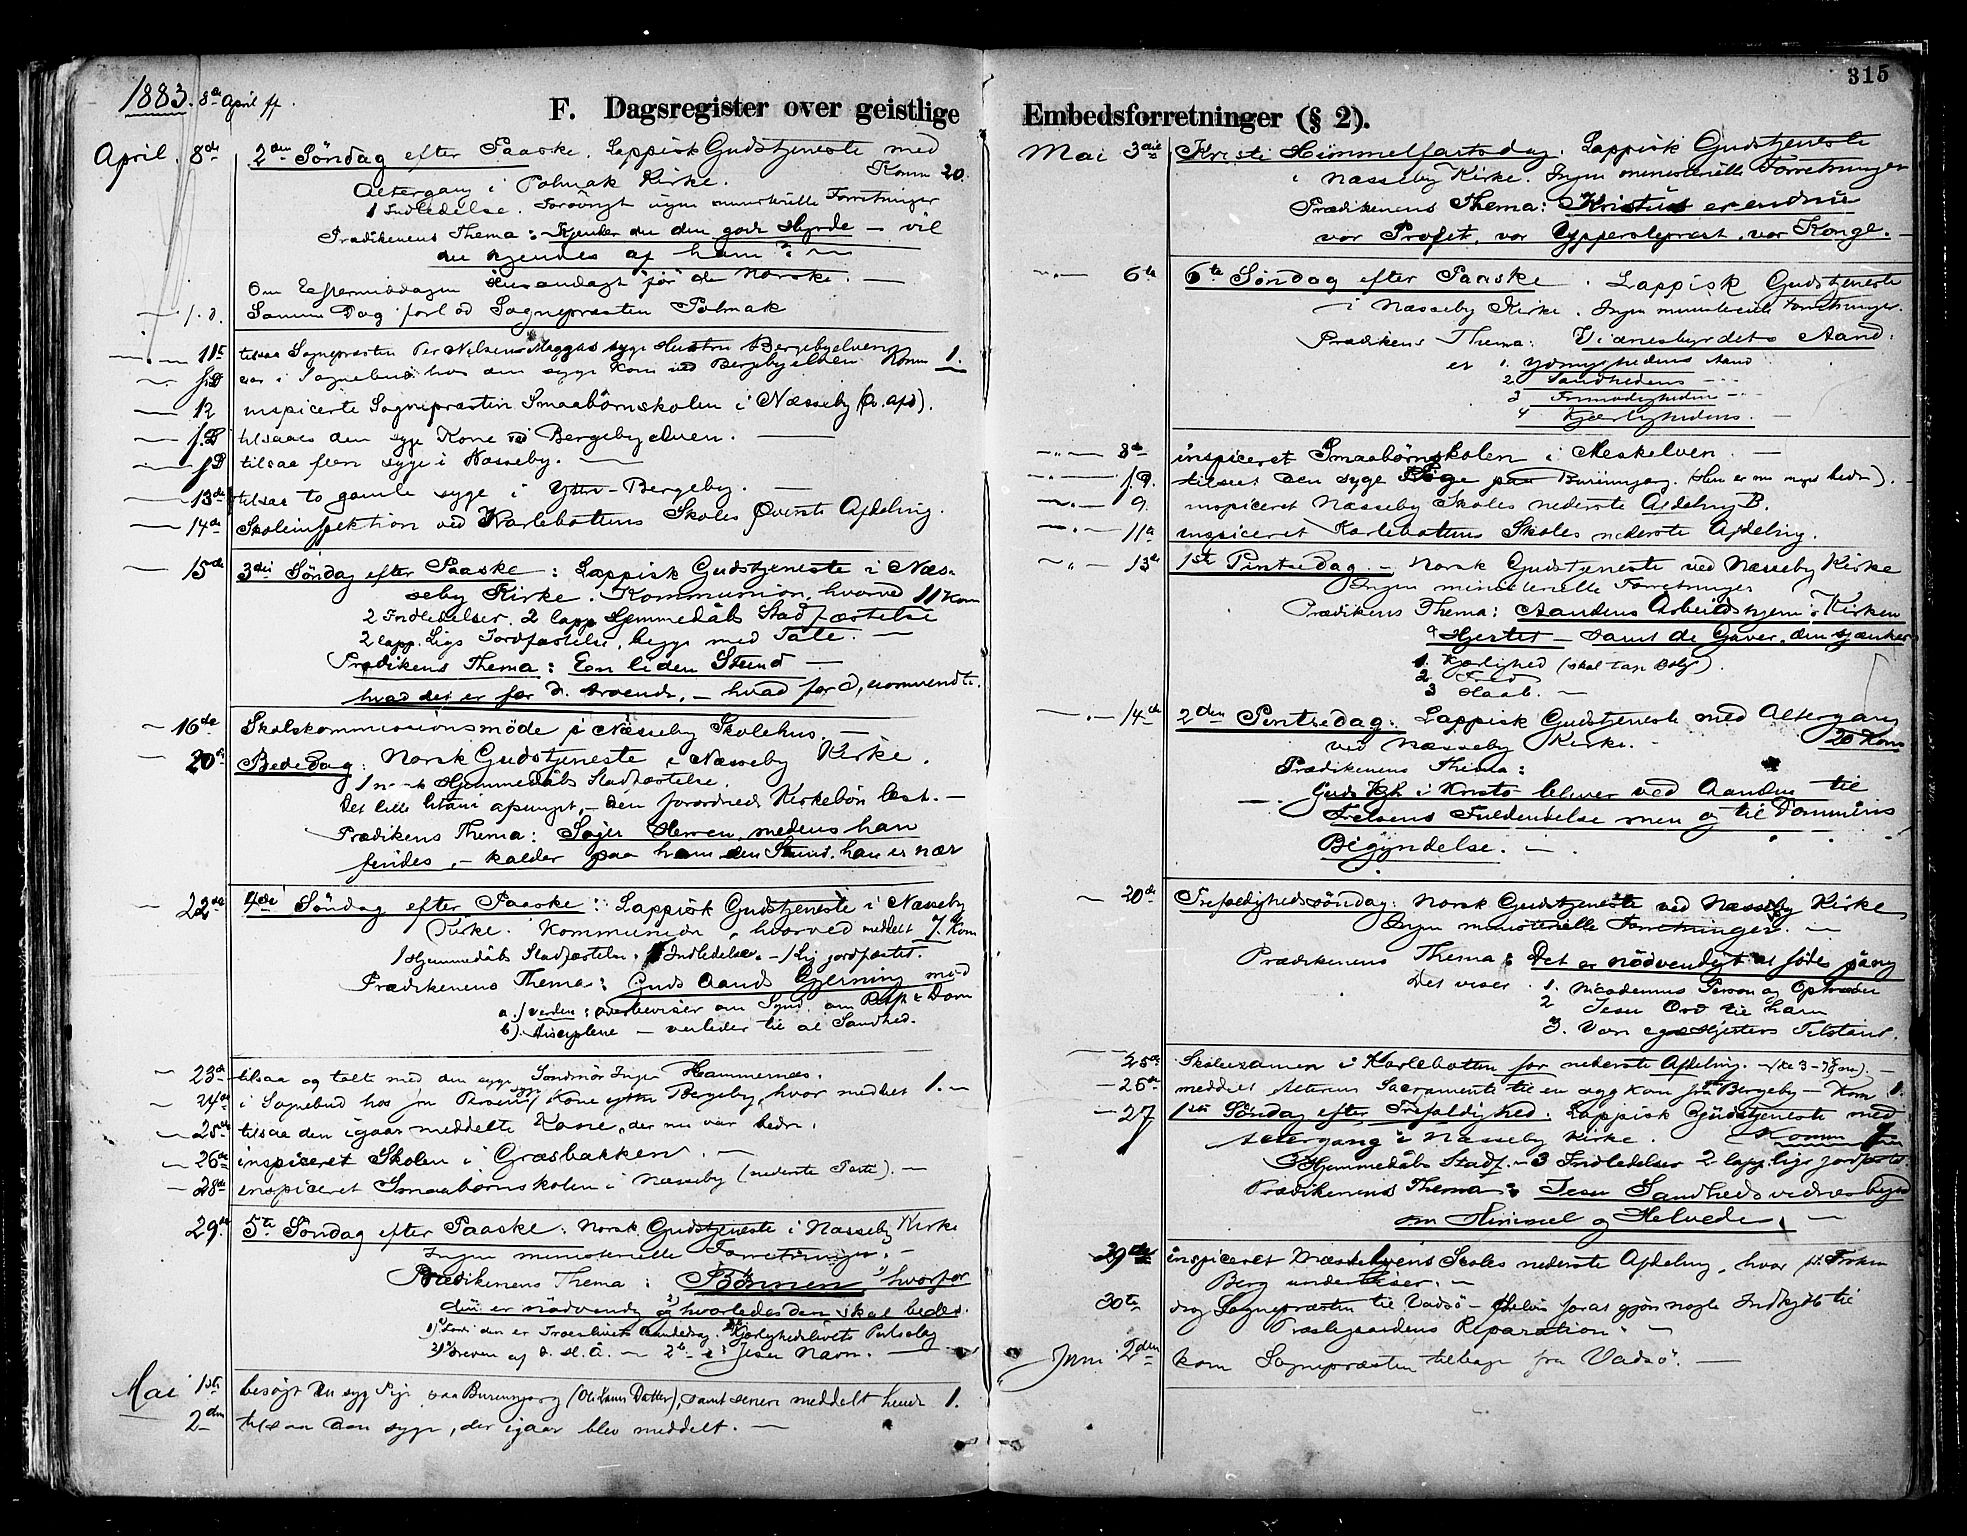 1883. 8de April ff.
F. Dagsregister over geistlige
April. 8de 2den Søndag efter Paaske. Lappisk Gudstjeneste med
Altergang i Polmak Kirke. Komm 20.
1 Indledelse. Forøvrigt ingen ministerielle Forretninger
Prædikenens Thema: Kjender du den gode Hyrde — vil
du kjendes af ham? —
Om Eftermiddagen Husandagt for de Norske. —
— f. D. Samme Dag forlod Sognepræsten Polmak
— 11te tilsaa Sognepræsten Per Nilsens Maggas syge Hustru Bergebyelven
— f. D var i Sognebud hos den syge Kone ved Bergebyelven Komm 1.
— 12 inspicerte Sognepræsten Smaabørnskolen i Næsseby (a. afd).
— f. D tilsaaes den syge Kone ved Bergebyelven. —
— f D tilsaa flere syge i Næsseby. —
— 13de tilsaa to gamle syge i Ytre-Bergeby. —
— 14de Skoleinspektion ved Karlebotens Skoles øverste Afdeling.
— 15de 3die Søndag efter Paaske: Lappisk Gudstjeneste i Næs-
seby Kirke. Kommunion, hvorved 11 Kom
2 Indledelser. 2 lapp Hjemmedåb Stadfæstelse
2 lapp. Ligs Jordfæstelse, begge med Tale. —
Prædikens Thema: En liden Stund —
hvad det er for d. troende, — hvad for d, uomvendte.
— 16de Skolekommissionsmøde i Næsseby Skolehus. —
— 20de Bededag: Norsk Gudstjeneste i Næsseby Kirke.
1 norsk Hjemmedåbs Stadfæstelse.
Det lille litani afsunget, — den forordnede Kirkebøn læst. —
Prædikens Thema: Søger Herren, medens han
findes, — kalder paa ham den Stund, han er nær
— 22de 4de Søndag efter Paaske: Lappisk Gudstjeneste i Næsseby
Kirke. Kommunion, hvorved meddelt 7. Kom
1 Hjemmedåb Stadfæstelse. Indledelse. — 1 Lig jordfæstet.
Prædikenens Thema: Guds Aands Gjerning med
a.) verden: overbeviser om Synd, om Retf. & Dom
b). Disciplene — veileder til al Sandhed.
— 23de tilsaa og talte med den syge Inger Hammernes.
— 24de i Sognebud hos en syg Kone ytre Bergeby, hvor meddelt 1. —
— 25de tilsaa den igaar meddelte Kone, der nu var bedre.
— 26de inspiceret Skolen i Græsbakken. —
— 28de inspiceret Smaabørnskolen i Næsseby (nederste Parti). —
29de 5te Søndag efter Paaske: Norsk Gudstjeneste i Næsseby Kirke
Ingen ministerielle Forretninger. —
Prædikenens Thema: Bønnen 1) hvorfor
den er nødvendig og 2) hvorledes den skal bedes.
1) fordi den er Troeslivets Aandedrag. Kjærlighedslivets Pulsslag
i Jesu Navn. —
Mai 1ste besøgt den syge Pige paa Burennjarg (Datter), samt senere meddelt hende 1.
2den tilsaa den syge, der igaar blev meddelt. —
315
Embedsforretninger (§ 2).
Mai 3die Kristi Himmelfartsdag. Lappisk Gudstjeneste
i Næsseby Kirke. Ingen ministerielle Forretninger
Prædikenens Thema: Kristus er endnu
vor Profet, vor Ypperstepræst, vor Konge. —
— 6te 6te Søndag efter Paaske. Lappisk Gudstjeneste
i Næsseby Kirke. Ingen ministerielle Forretninger.
Prædikens Thema: Vidnesbyrdets Aand:
er 1. Ydmyghedens Aand
2 Sandhedens — "
3 Frimodigheden — "
4 Kjærlighedens. —
— 8de inspiceret Smaabørnskolen i Meskelven. —
— f. D. tilseet den syge Pige paa Burennjarg. (Hun er nu meget bedre). —
— 9. inspiceret Næsseby Skoles nederste Afdeling B.
— 11te inspiceret Karlebotens Skoles nederste Afdeling.
— 13de 1ste Pintsedag. — Norsk Gudstjeneste ved Næsseby Kirke
Ingen ministerielle Forretninger
Prædikens Thema: Aandens Arbeidshjem: Kirken
& Hjertet — samt de Gaver, den skjænker
1. Kærlighed
2 Fred
3 Haab. —
— 14de 2den Pintsedag: Lappisk Gudstjeneste med Altergang
ved Næsseby Kirke. — 20 Kom
Prædikenens Thema:
Guds Kjh i Kristo bliver ved Aanden til
Frelsens Fuldendelse men og til Dommens
Begyndelse. —
— 20de Trefoldighedssøndag: Norsk Gudstjeneste ved Næsseby Kirke
Ingen ministerielle Forretninger. —
Prædikenens Thema: Det er nødvendigt at fødes paany
Det viser. 1. Nicodemus Person og Optræden
2 Jesu Ord til ham
3. Vore egne Hjerters Tilstand.
— 25de Skoleexamen i Karleboten for nederste Afdeling. —
— 26de meddelt Alterens Sacramente til en syg Kone fra Bergeby — Kom 1.
— 27 1ste Søndag efter Trefoldighed: Lappisk Gudstjeneste med
Altergang i Næsseby Kirke. Komm 7
Hjemmedåb Stadf. — 3 Indledelser 2 lapp. lig jordfæstet.
Prædikenens Thema: Jesu Sandhedsvidnesbyrd
om Himmel og Helvede. —
29de inspiceret Skoles nederste Afdeling, hvor Frøken
Berg underviser. —
30te drog Sognepræsten til Vadsø — for at gjøre nogle Indkjøb til
Præstegaardens Reparation. —
Juni 2den kom Sognepræsten tilbage fra Vadsø. —